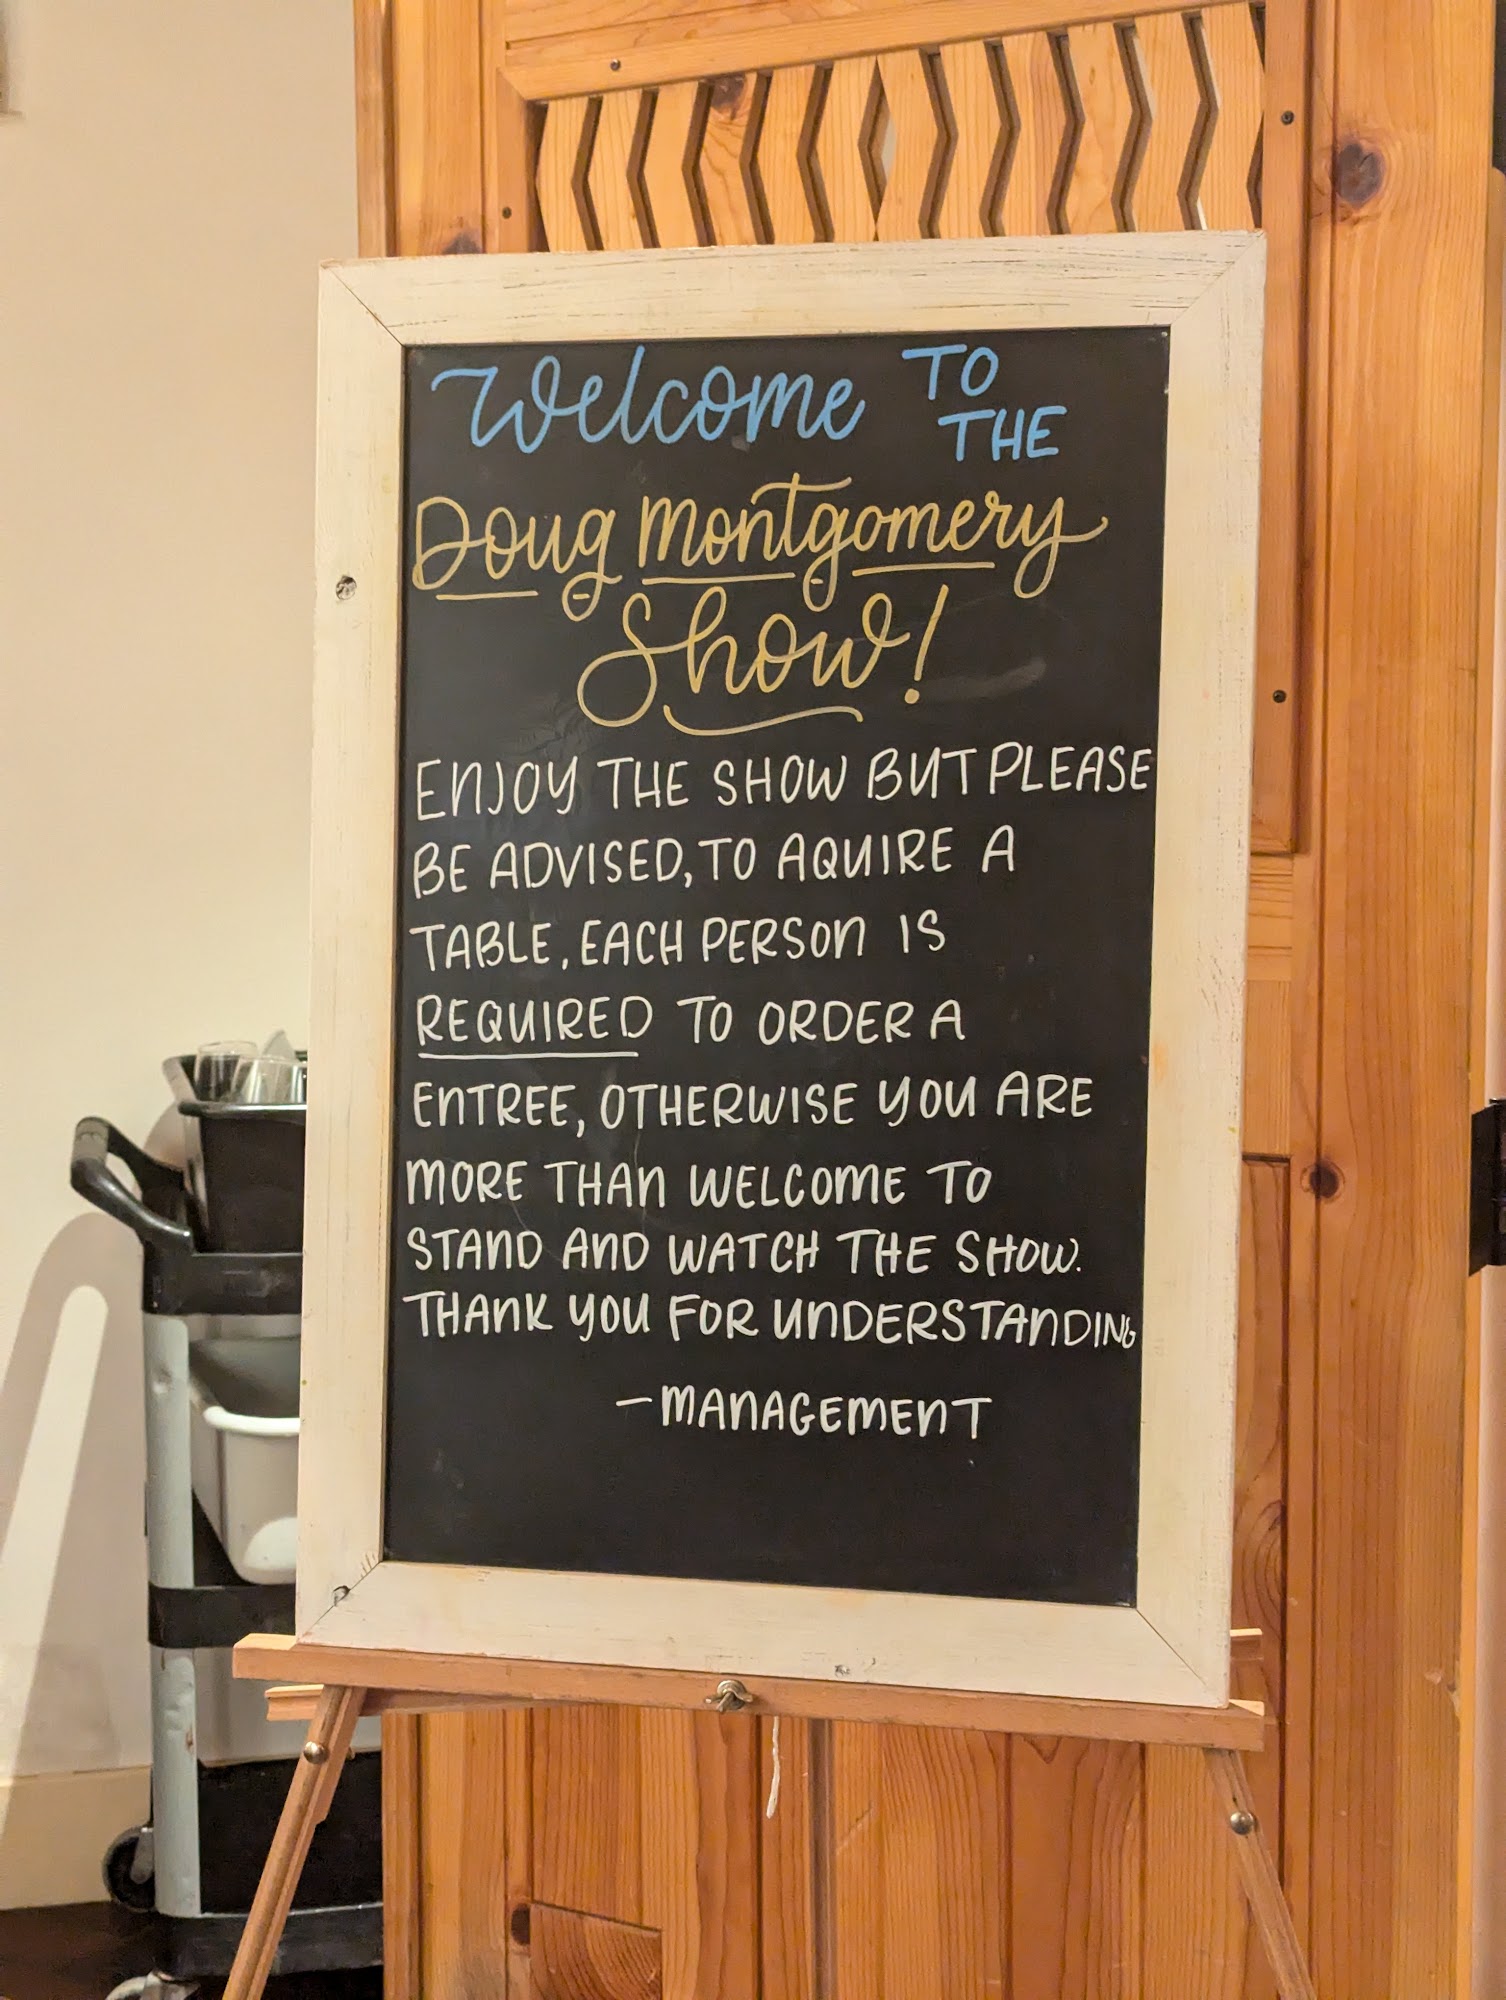 Welcome TO
THE
Doug Montgomery
Show!
ENJOY THE SHOW BUT PLEASE
BE ADVISED, TO AQUIRE A
TABLE, EACH PERSON IS
REQUIRED TO ORDER A
ENTREE, OTHERWISE YOU ARE
MORE THAN WELCOME TO
STAND AND WATCH THE SHOW.
THANK YOU FOR UNDERSTANDING
-MANAGEMENT